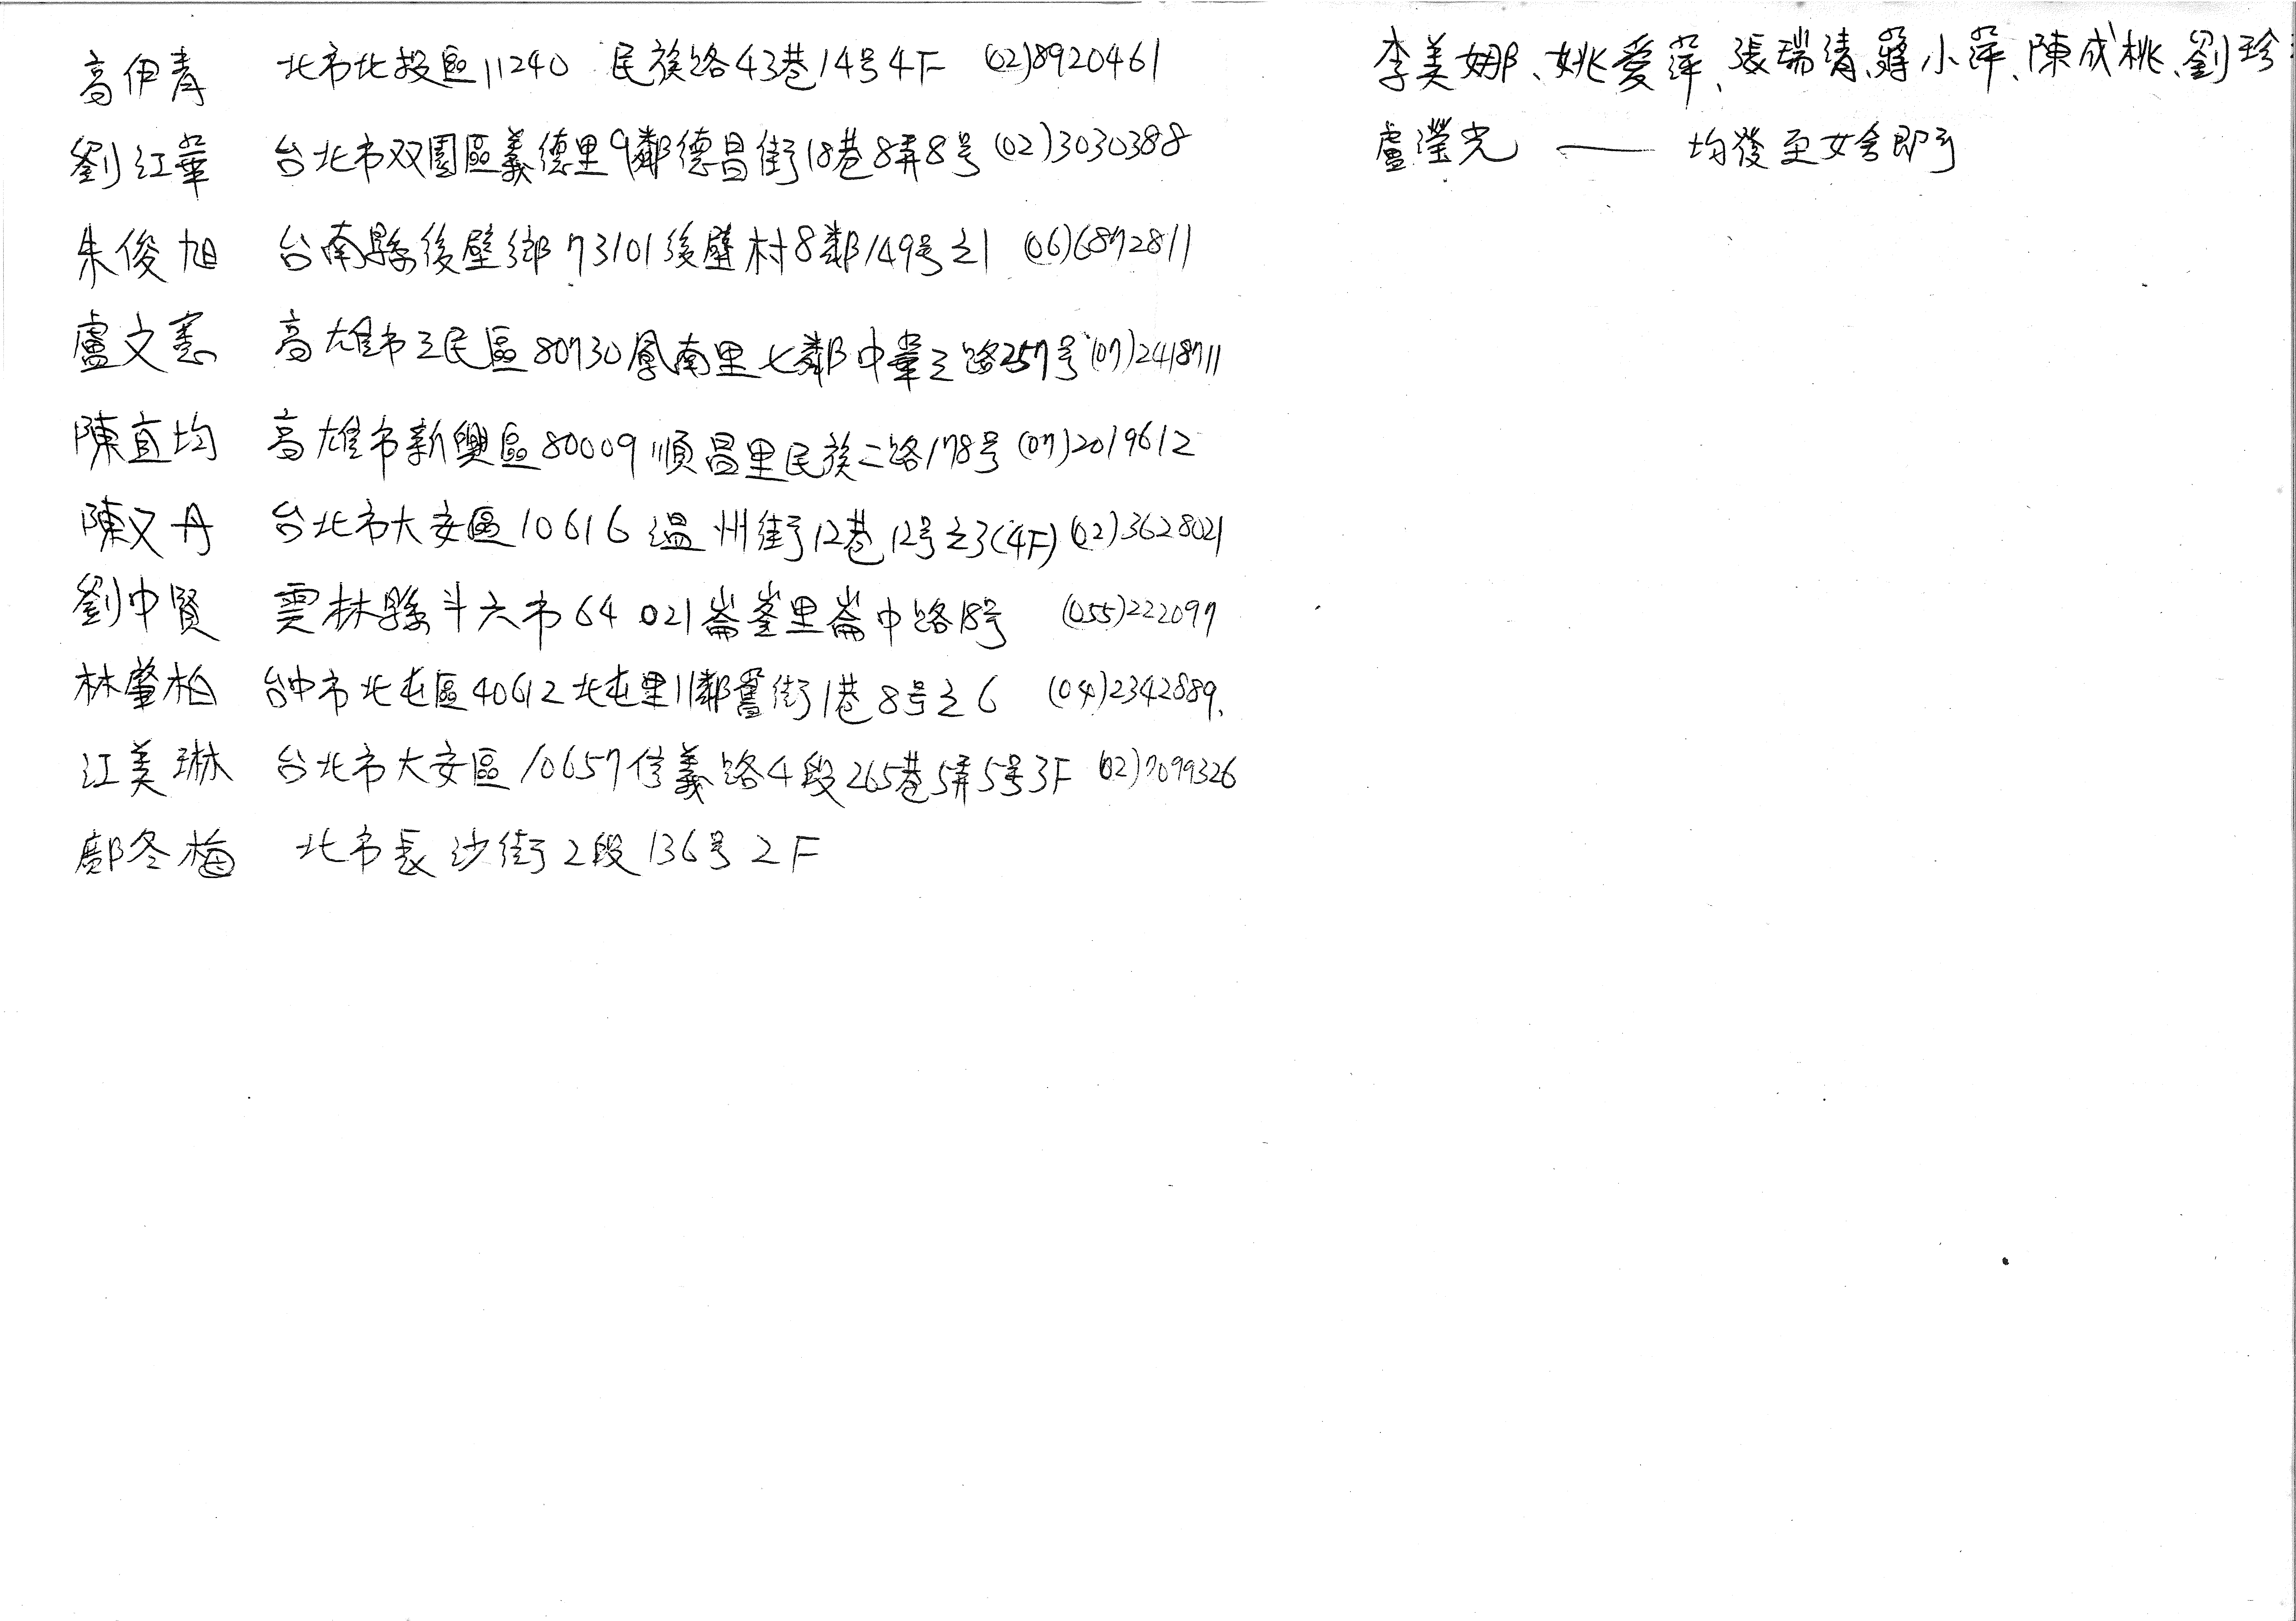 高伊青 北市北投區11240 民族路43巷14号4F (02)8920461
劉江華 台北市双園區義德里9鄰德昌街18巷8弄8号 (02)3030388
朱俊旭 台南縣後壁鄉73101後壁村8鄰149号之1 (06)6872811
盧文憲 高雄市三民區80730鳳南里七鄰中華三路257号 (07)2418711
陳宜均 高雄市新興區80009順昌里民族二路178号 (07)2019612
陳又丹 台北市大安區10616溫州街12巷12号之3(4F) (02)3628021
劉中賢 雲林縣斗六市64021崙峯里崙中路18号 (055)222097
林肇柏 台中市北屯區40612北屯里11鄰舊街1巷8号之6 (04)2342889.
江美琳 台北市大安區10657信義路4段265巷5弄5号3F (02)7099326
鄺冬梅 北市長沙街2段136号2F
李美娜、姚愛萍、張瑞清、蔣小萍、陳成桃、劉珍
盧瀅光 —— 均後至女舍即可